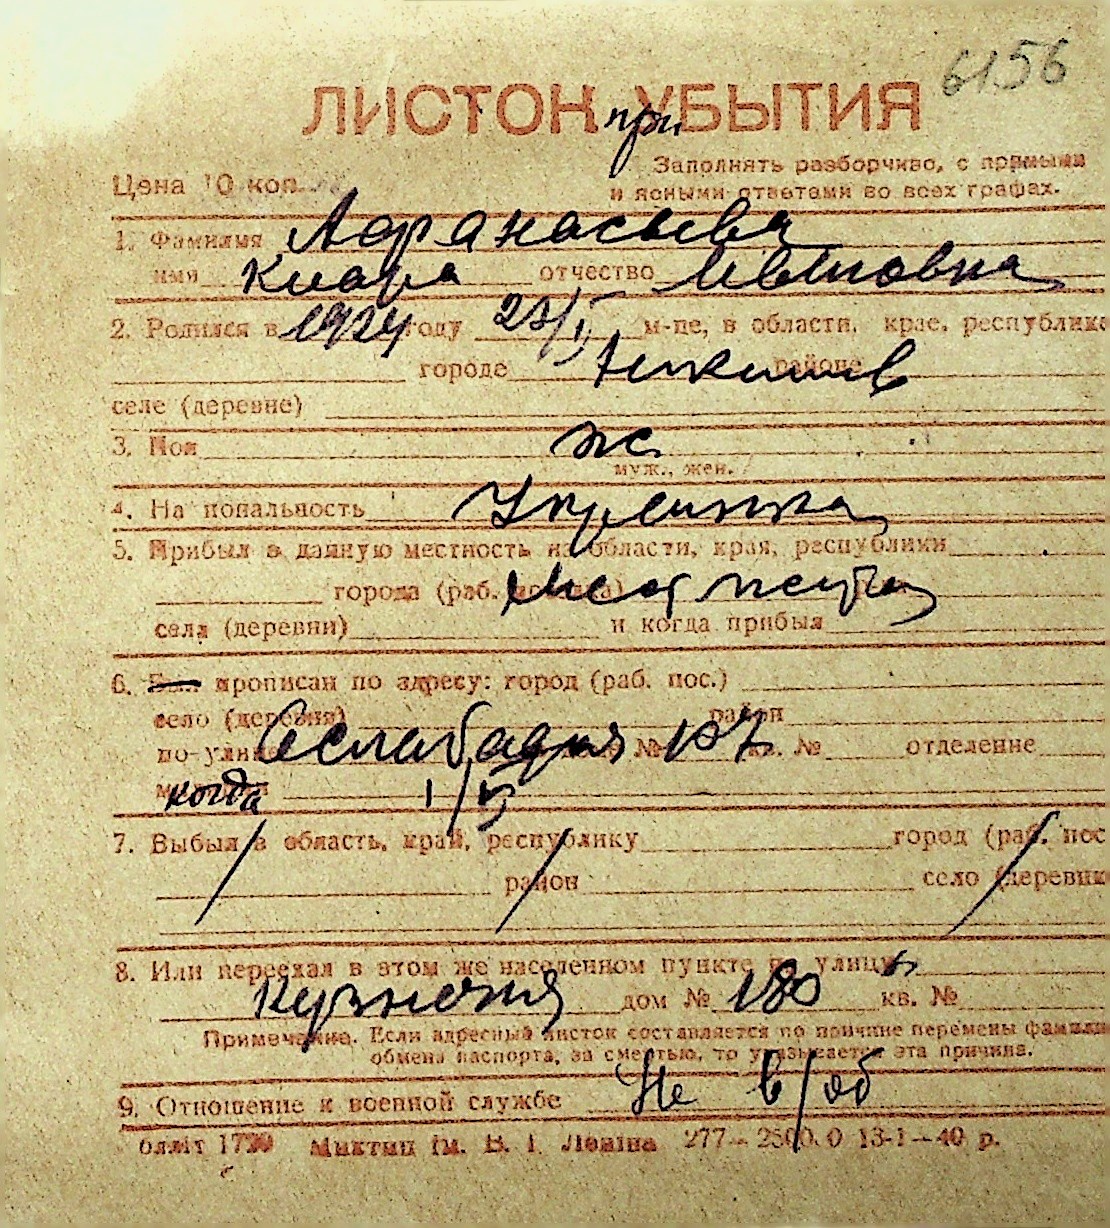 6156
ЛИСТОК при УБЫТИЯ
Заполнять разборчиво, с прямыми
Цена 10 коп.
и ясными ответами во всех графах.
1. Фамилия Афанасьева
имя Клара отчество Ивановна
2. Родился в 1924 году 23/ м-це, в области, крае, республике
городе районе
селе (деревне)
3. Пол ж.
муж., жен.
4. На иональность Украинка
5. Прибыл в данную местность из области, края, республики
города (раб. Мелитополь
села (деревни) и когда прибыл
6. Был прописан по адресу: город (раб. пос.)
село (деревня) район
по улице № 107 кв. № отделение
когда 1/VI
7. Выбыл в область, край, республику город (раб. пос
район село (деревни
8. Или переехал в этом же населенном пункте по улицу
дом № 180 кв. №
Примечание. Если адресный листок составляется по причине перемены фамилии
обмена паспорта, за смертью, то указывается эта причина.
9. Отношение к военной службе Не в/об
облліт 1790 Миктип ім. В. І. Леніна 277—2500.0 13-1—40 р.